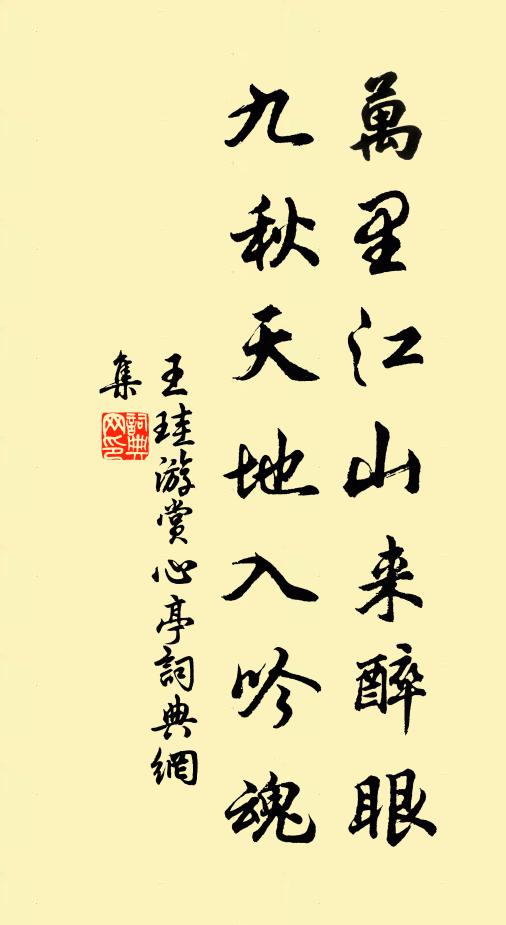 萬里江山来醉眼
九秋天地入吟魂
王珪游賞心亭詞典網
集
詞典
网印